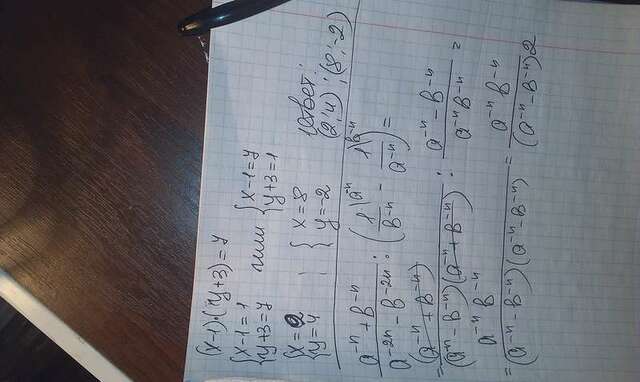 (x-1)·(y+3)=7
{x-1=1 {y+3=7 или {x-1=7 {y+3=1
{x=2 {y=4 ; {x=8 {y=-2
Ответ:
(2;4);(8;-2)
a⁻ⁿ+b⁻ⁿ / a⁻²ⁿ-b⁻²ⁿ : (1\a⁻ⁿ / b⁻ⁿ - 1\b⁻ⁿ / a⁻ⁿ) =
= (a⁻ⁿ+b⁻ⁿ) / (a⁻ⁿ-b⁻ⁿ)(a⁻ⁿ+b⁻ⁿ) : a⁻ⁿ-b⁻ⁿ / a⁻ⁿb⁻ⁿ =
= a⁻ⁿb⁻ⁿ / (a⁻ⁿ-b⁻ⁿ)(a⁻ⁿ-b⁻ⁿ) = a⁻ⁿb⁻ⁿ / (a⁻ⁿ-b⁻ⁿ)2